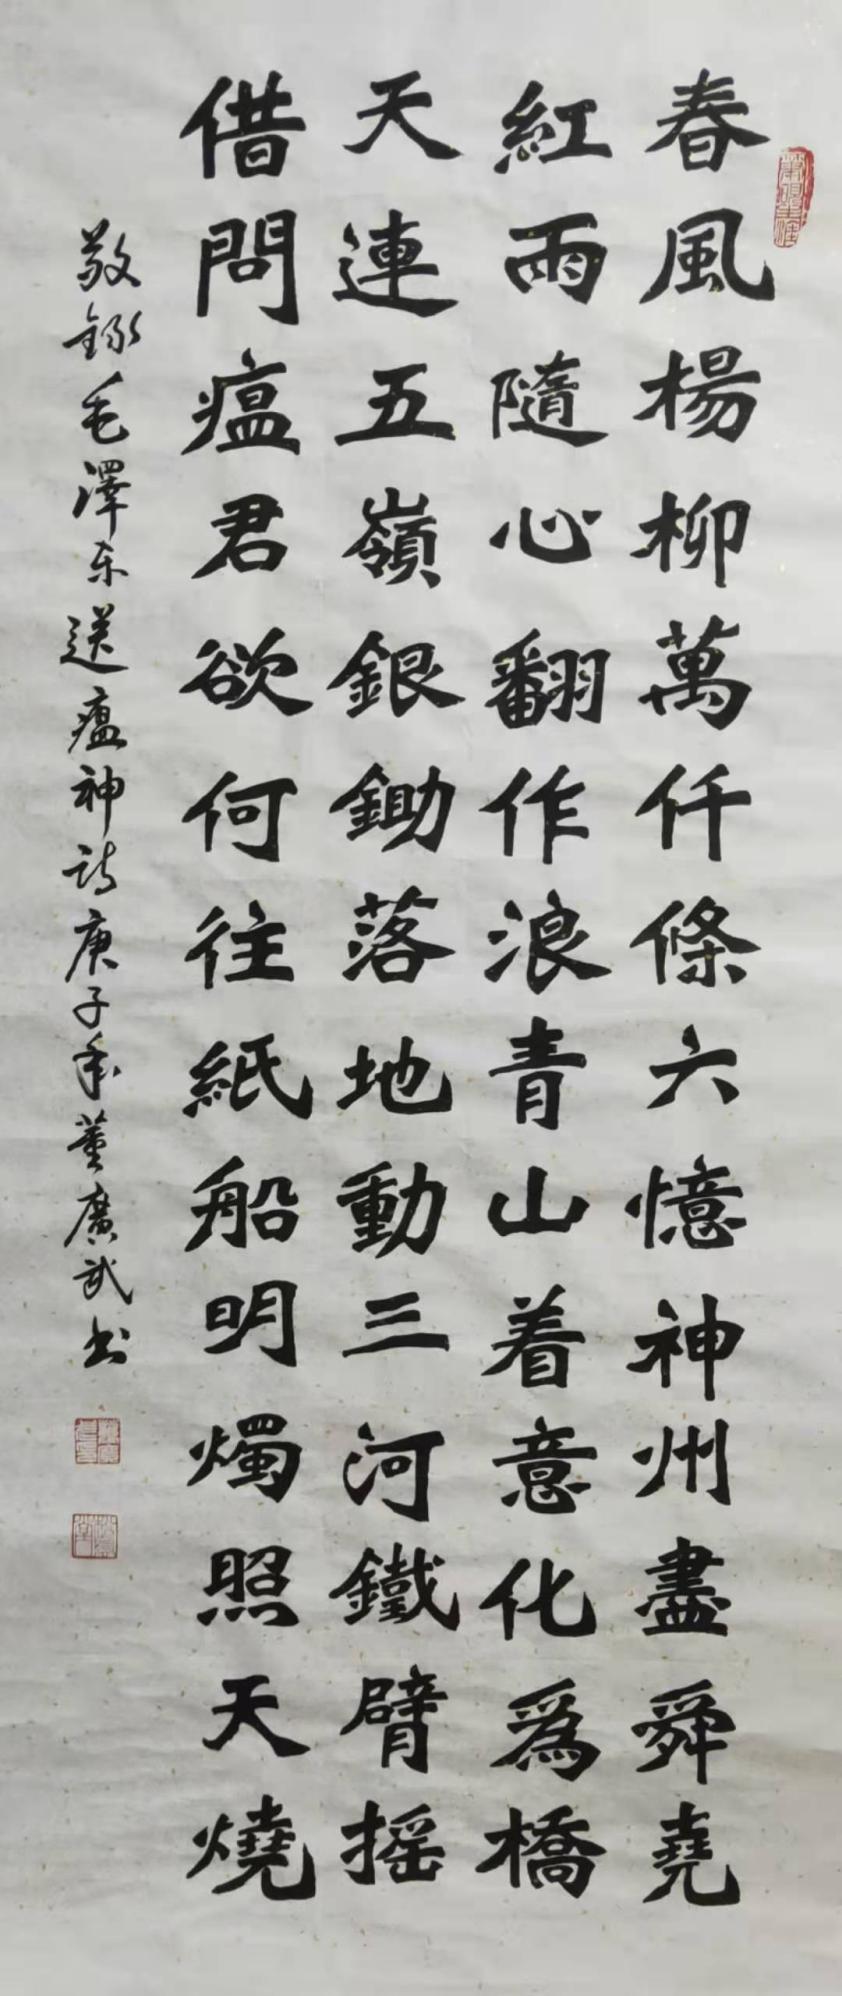 春風楊柳萬仟條六憶神州盡舜堯
紅雨隨心翻作浪青山着意化爲橋
天連五嶺銀鋤落地動三河鐵臂摇
借問瘟君欲何往紙船明燭照天燒
敬録毛澤东送瘟神诗庚子年董廣武书